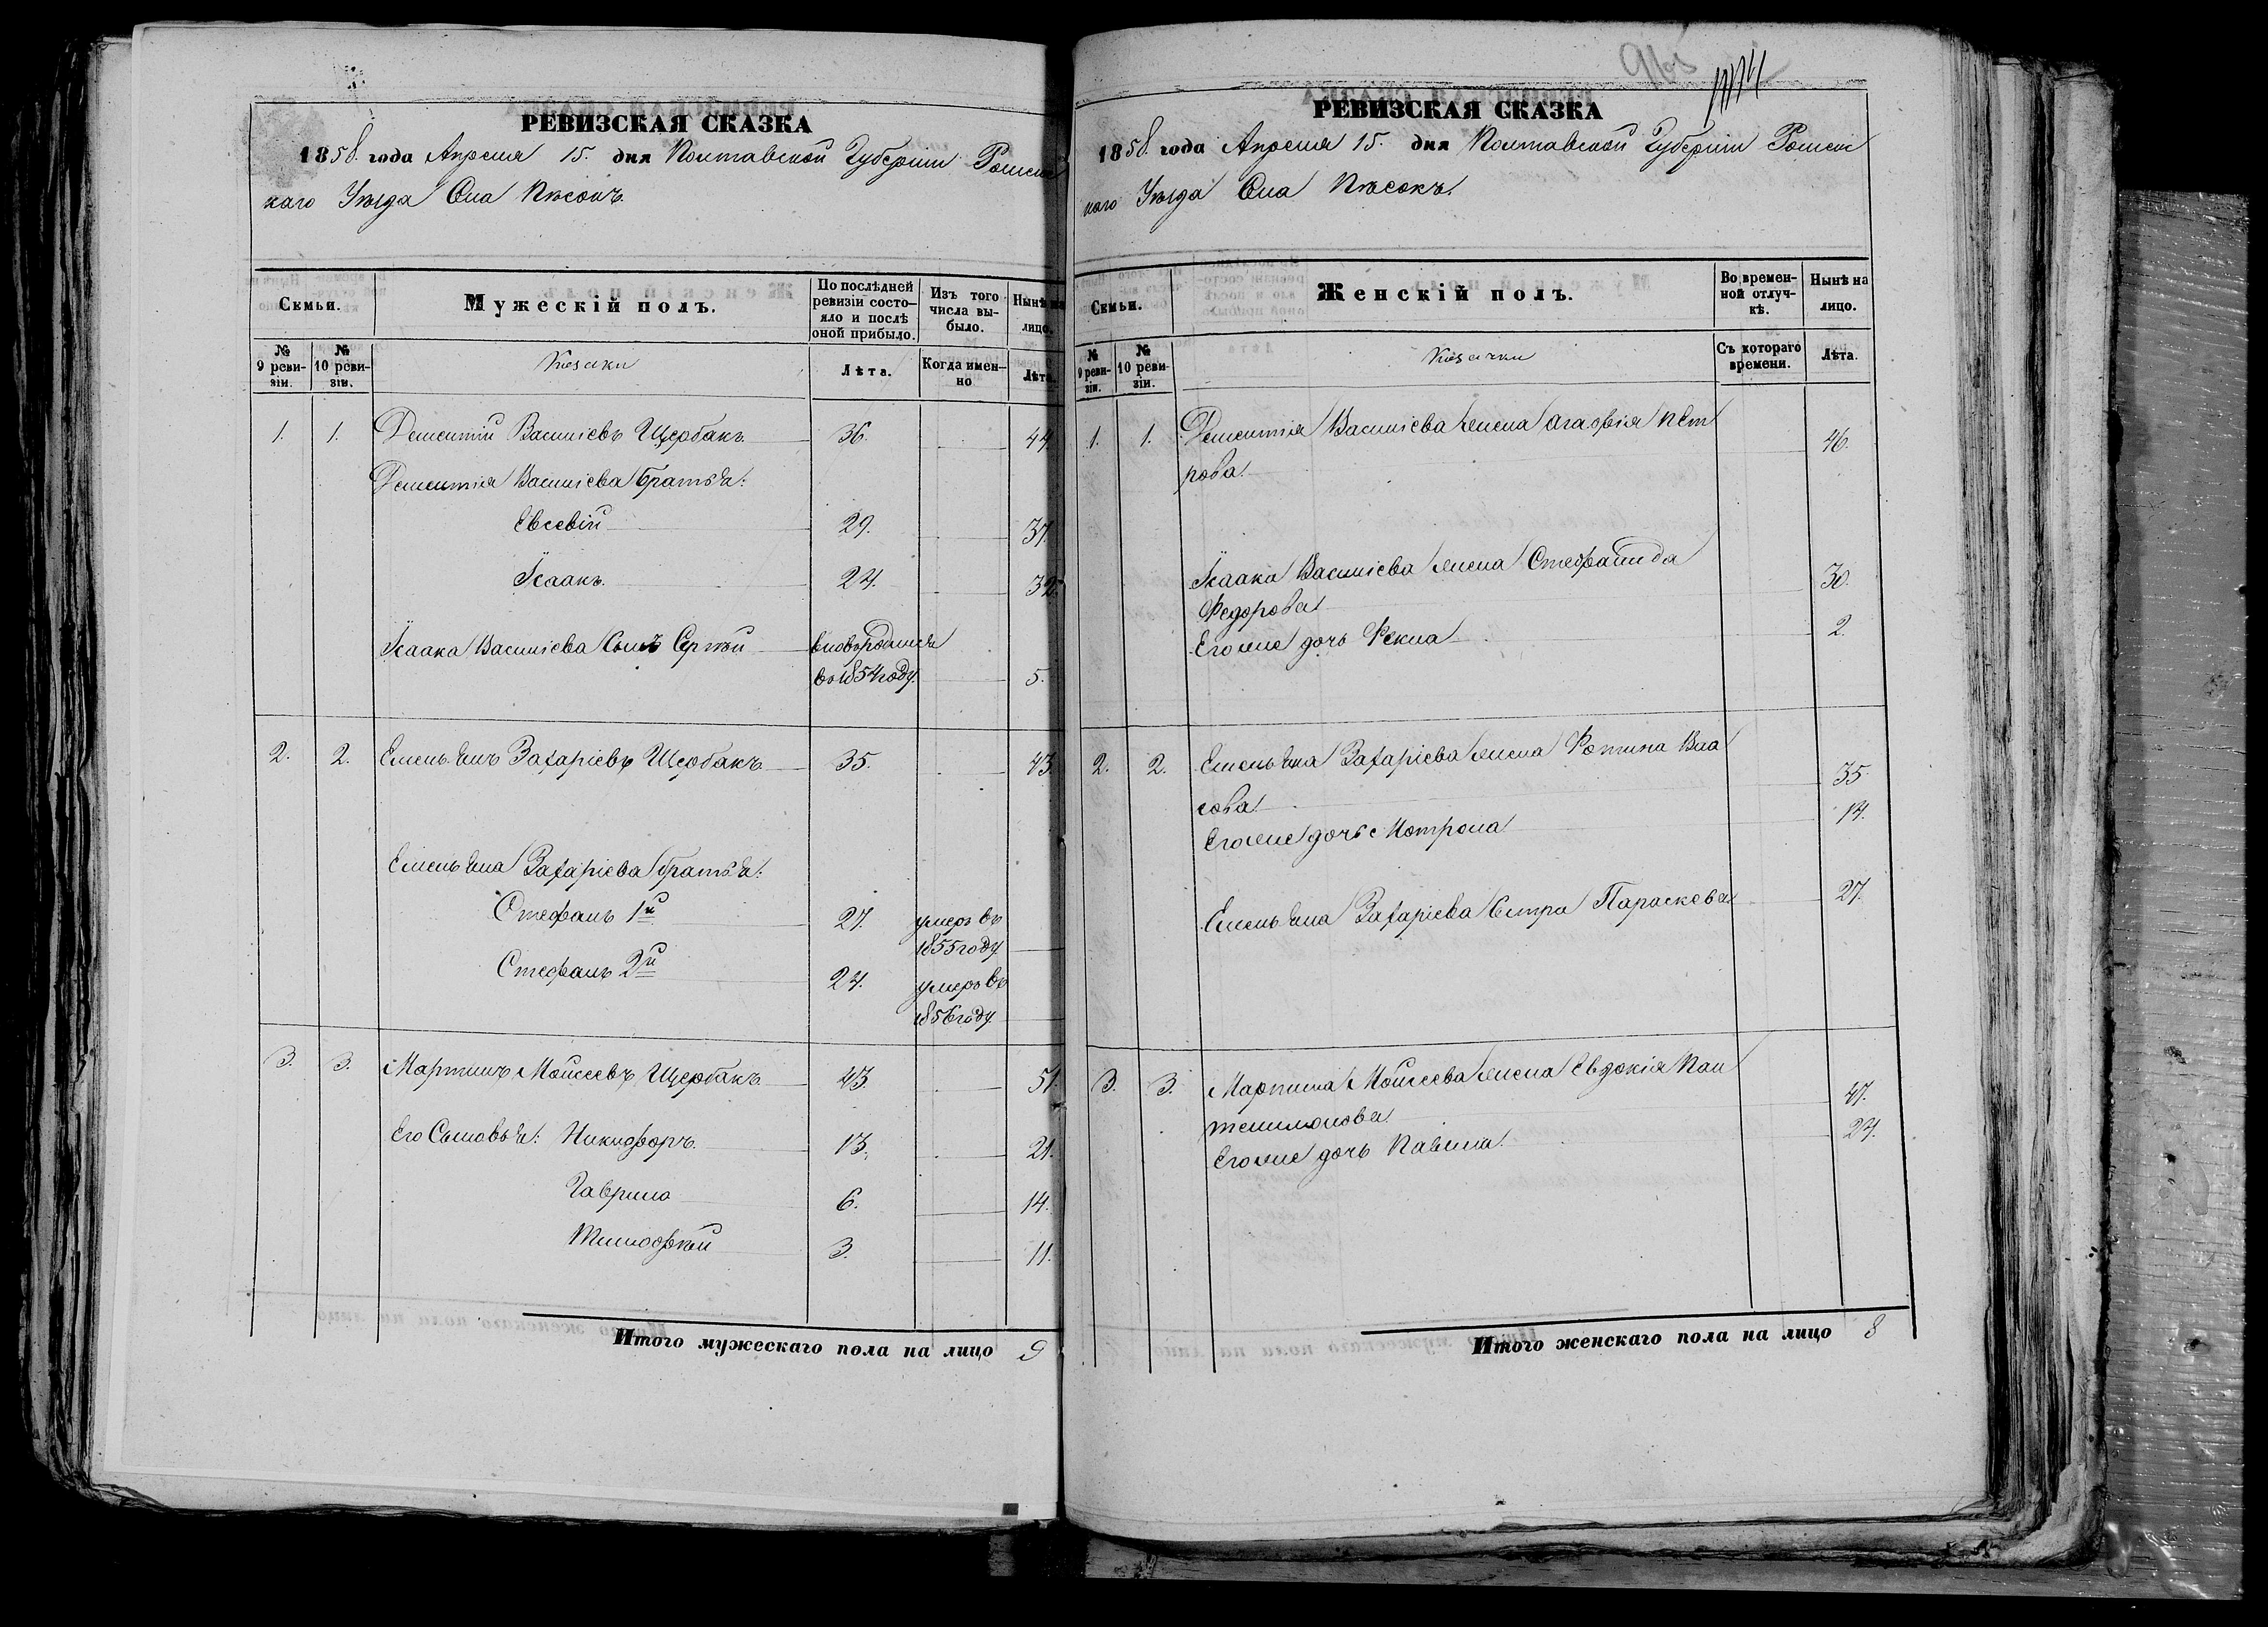 РЕВИЗСКАЯ СКАЗКА
1858. года Апреля 15. дня Полтавской Губерніи Роменс
каго Уѣзда Села Пѣсокъ.
Семьи.
Мужескій полъ.
По послѣдней ревизіи состо-
яло и послѣ
оной прибыло.
Изъ того
числа вы-
было.
Нынѣ на
лицо.
№
9 реви-
зіи.
№
10 реви-
зіи.
Козаки
Лѣта.
Когда имен-
но
Лѣта.
1. 1. Дементій Васильевъ Щербакъ 36. 44.
Дементія Васильева братья:
Евсевій 29. 37.
Ісаакъ 24. 32.
Ісаака Васильева сынъ Сергѣй вновьродился
во 1854 году. 5.
2. 2. Емельянъ Захаріевъ Щербакъ 35. 43.
Емельяна Захаріева братья:
Стефанъ 1й 27. умеръ въ
1855 году
Стефанъ 2й 24. умеръ въ
1856 году
3. 3. Мартинъ Моисеевъ Щербакъ 43 51.
Его Сыновья: Никифоръ 13. 21.
Гаврило 6. 14.
Тимофѣй 3. 11.
Итого мужескаго пола на лицо 9
РЕВИЗСКАЯ СКАЗКА
1858. года Апреля 15. дня Полтавской Губерніи Роменс
каго Уѣзда Села Пѣсокъ.
Семьи.
Женскій полъ.
Во времен-
ной отлуч-
кѣ.
Нынѣ на
лицо.
№
9 реви-
зіи.
№
10 реви-
зіи.
Козачки
Съ котораго
времени.
Лѣта.
1. 1. Дементія Васильева жена Агафія Пет
рова 46.
Ісаака Васильева жена Стефанида
Федорова 30.
Его же дочь Фекла 2.
2. 2. Емельяна Захаріева жена Фотина Вла
сова 35.
Его же дочь Мотрона 14.
Емельяна Захаріева Сестра Параскева 27.
3. 3. Мартина Моисеева жена Евдокія Пан
телимонова 47.
Его же дочь Павлина 24.
Итого женскаго пола на лицо 8